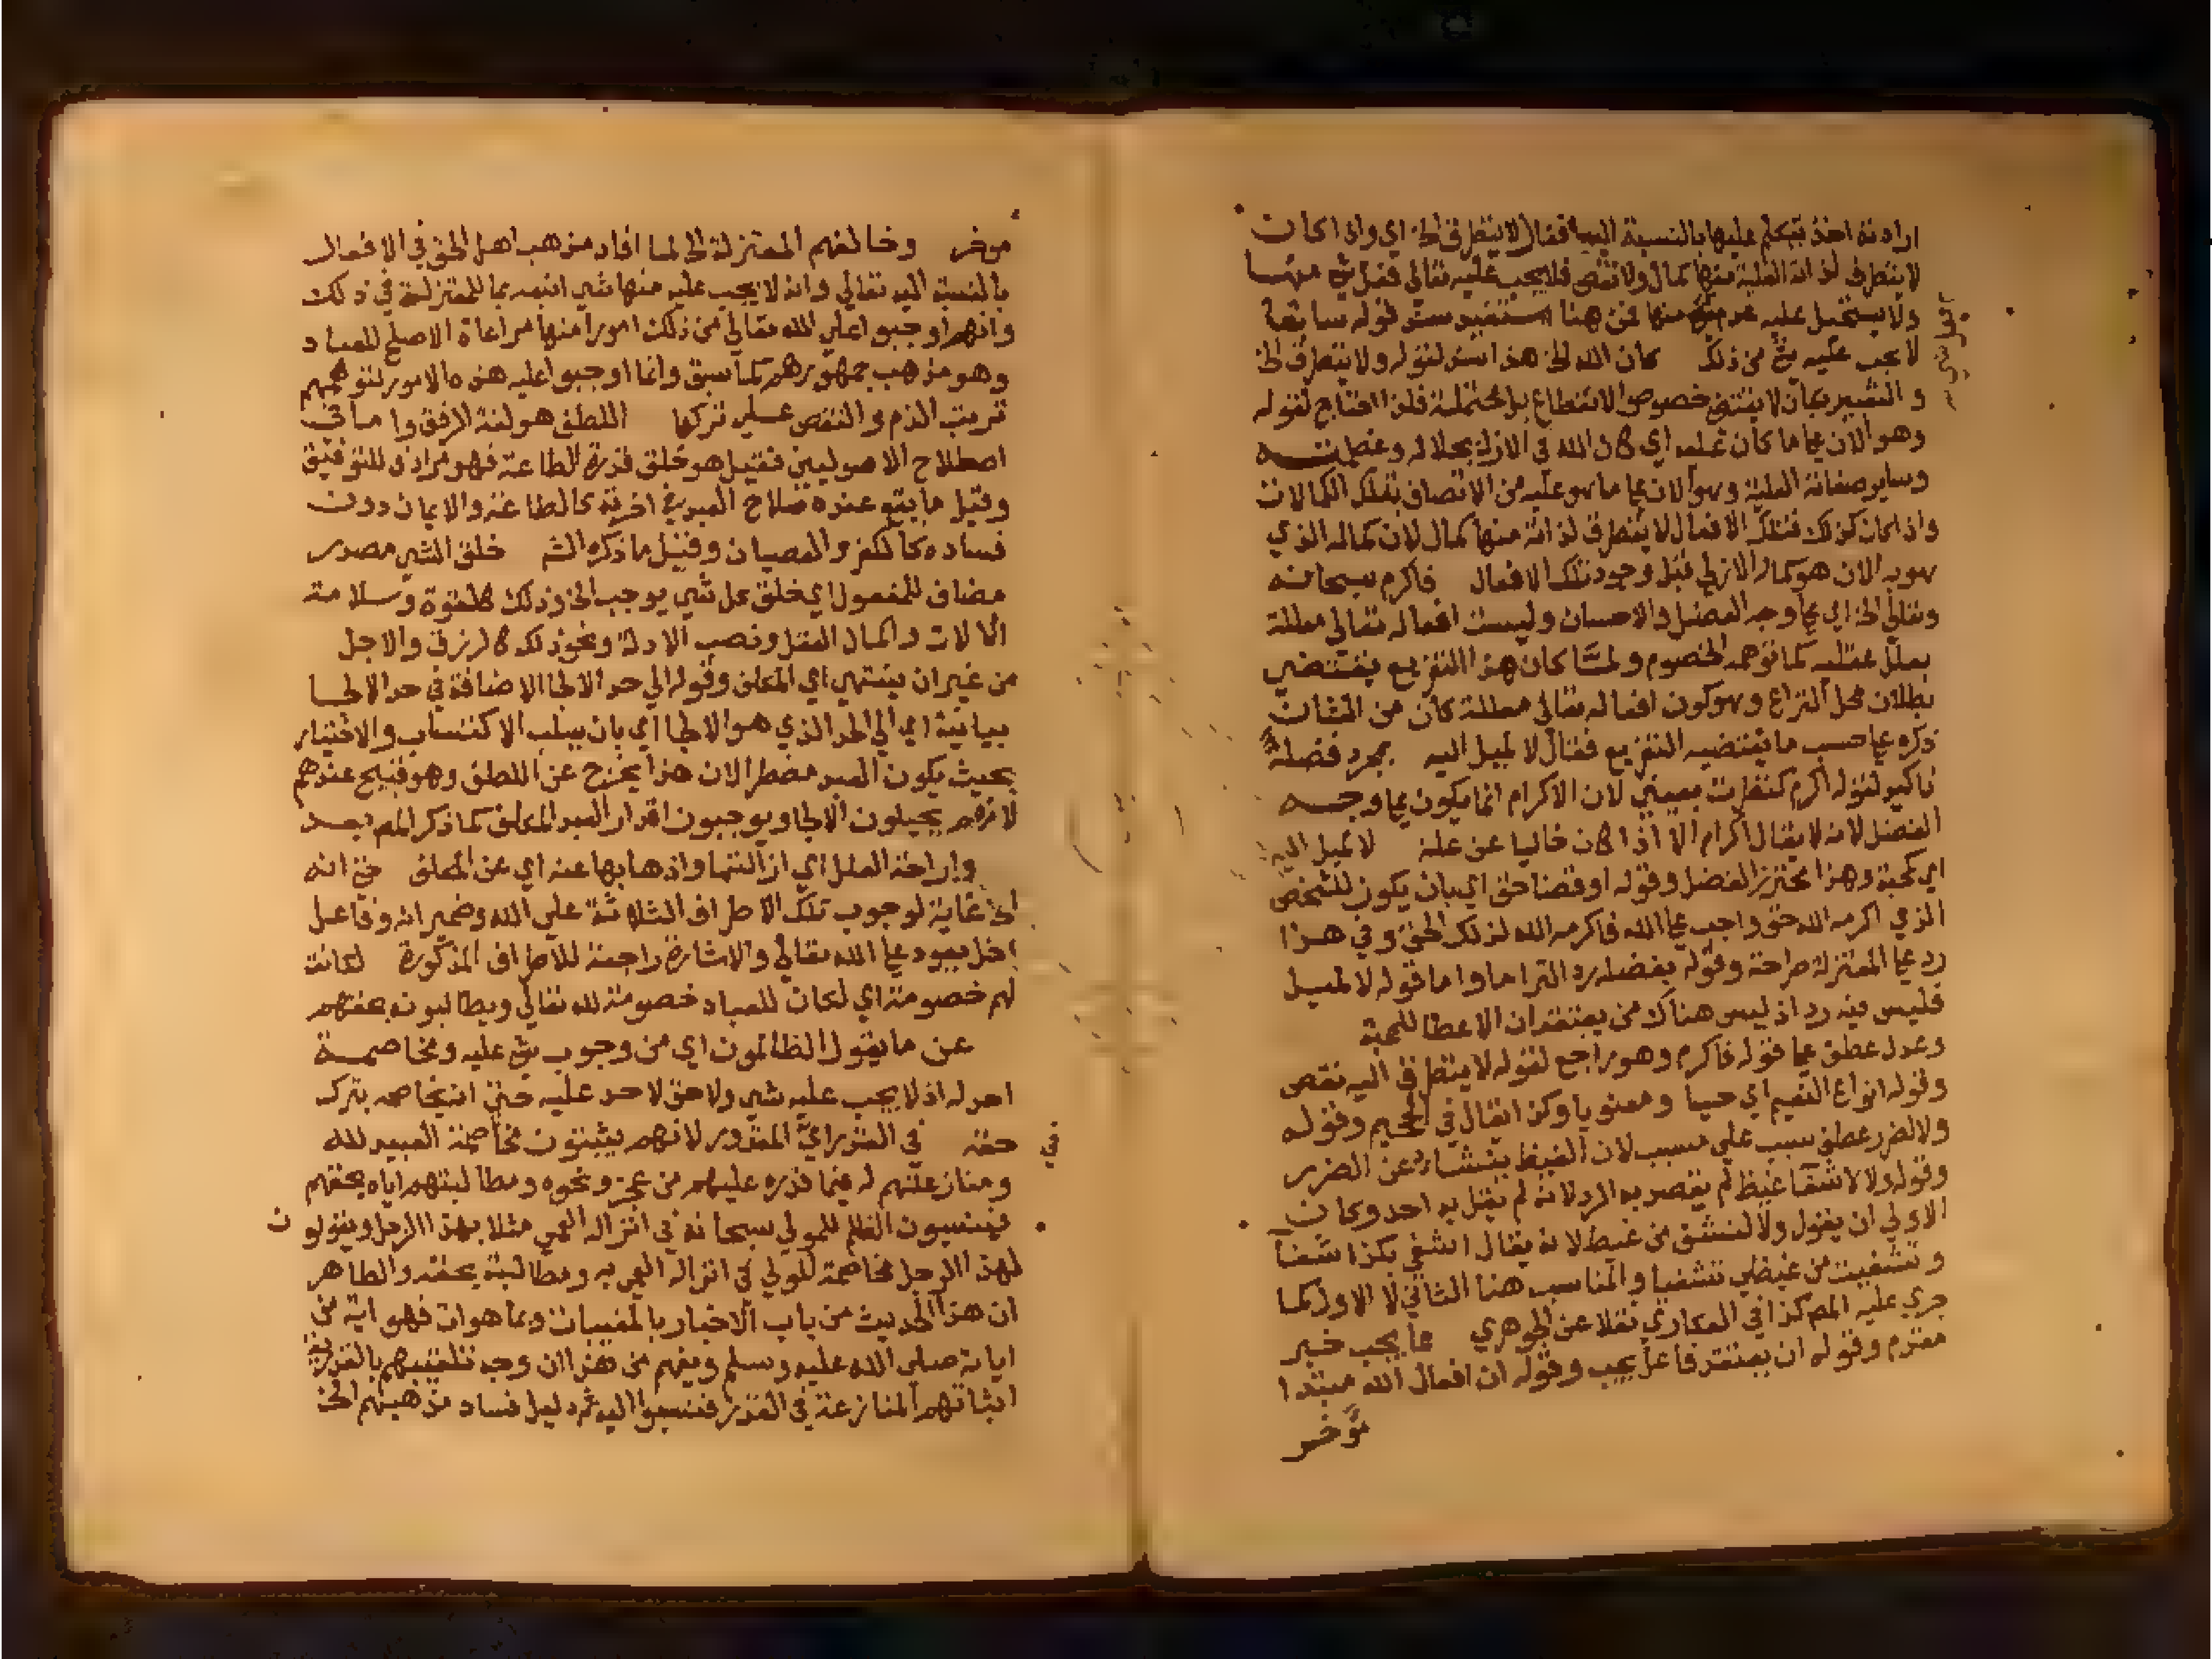 ارادته اخذ يتكلم عليها بالنسبة اليه فقال لا يتطرق الخ اي واذا كان
لا يتطرق لذاته العلية منها كمال ولا نقص فلا يجب عليه تعالى فعل شي منها
ولا يستحيل عليه منها فمن هنا تستفيد قوله سابقا
لا يجب عليه شي من ذلك كان الله الخ هذا سند لقوله ولا يتطرق الخ
و التعبير بكان لا يقتضي خصوص الانقطاع بل محتملة فلذا احتاج لقوله
وهو الان على ما كان عليه اي كان الله في الازل بجلاله وعظمته
وساير صفاته العلية وهو الان على ما هو عليه من الاتصاف بتلك الكمالات
واذا كان كذلك فتلك الافعال لا يتطرق لذاته منها كمال لان كماله الذي
هو به الان هو كماله الازلي قبل وجود تلك الافعال فاكرم سبحانه
وتعالى الخ اي على وجه الفضل والاحسان وليست افعاله تعالى معللة
بعلل عقلية كما توهمه الخصوم ولما كان هذا التفريع يقتضي
بطلان محل النزاع وهو كون افعاله تعالى معللة كان من
ذكره على حسب ما يقتضيه التفريع فقال لا لميل اليه بمجرد فضله
تاكيد لقوله اكرم لان الاكرام انما يكون على وجه
الفضل لانه لا يقال اكرام الا اذا كان خاليا عن علة لا لميل اليه
اي محبة وهذا محترز الفضل وقوله او قضا حق اي بان يكون للشخص
الذي اكرمه الله حق واجب على الله فاكرمه الله لذلك الحق وفي هذا
رد على المعتزلة صراحة وقوله بفضله رد التزاما واما قوله لا لميل
فليس فيه رد اذ ليس هناك من يعتقد ان الاعطا للمحبة
وعدل عطف على قوله فاكرم وهو راجع لقوله لا يتطرق اليه نقص
وقوله انواع النعيم اي حسيا ومعنويا وكذا يقال في الجحيم وقوله
ولا لضرر عطف سبب على مسبب لان الغيظ ينشا عن الضرر
وقوله ولا لاشفا غيظ لم يقصد به الرد لانه لم يقل به احد وكان
الاولى ان يقول ولا لتشف من غيظ لانه يقال اشتفى بكذا
وتشفيت من غيظي تشفيا والمناسب هنا الثاني لا الاول كما
جرى عليه المص كذا في العكاري نقلا عن الجوهري مما يجب خبر
مقدم وقوله ان يعتقد فاعل يجب وقوله ان افعال الله مبتدا
مؤخر
موخر وخالفهم المعتزلة الخ لما افاد مذهب اهل الحق في الافعال
بالنسبة اليه تعالى وانه لا يجب عليه منها شي اتبعه بما للمعتزلة في ذلك
وانهم اوجبوا على الله تعالى من ذلك امورا منها مراعاة الاصلح للعباد
وهو مذهب جمهورهم كما سبق وانما اوجبوا عليه هذه الامور لتوهمهم
ترتب الذم والنقص على تركها اللطف هو لغة الرفق واما في
اصطلاح الاصوليين فقيل هو خلق قدرة الطاعة فهو مرادف للتوفيق
وقيل ما يقع عنده صلاح العبد في اخرته كالطاعة والايمان دون
فساده كالكفر والعصيان وقيل ما ذكره الش خلق الشي مصدر
مضاف للمفعول اي خلق كل شي يوجب الخ وذلك كالقوة وسلامة
الالات واكمال العقل ونصب الادلة ونحو ذلك كالرزق والاجل
من غير ان ينتهي اي المكلف وقوله الى حد الالجا الاضافة في حد الالجا
بيانية اي الى الحد الذي هو الالجا اي بان يسلب الاكتساب والاختيار
بحيث يكون العبد مضطرا لان هذا يخرج عن اللطف وهو قبيح عندهم
لانهم يحيلون الالجا ويوجبون اقدار العبد المكلف كما ذكر المص بعد
وازاحة العلل اي ازالتها واذهابها عنه اي عن المكلف حتى انه
الخ غاية لوجوب تلك الاطراف الثلاثة على الله وضمير انه وفاعل
اخل يعود على الله تعالى والاشارة راجعة للاطراف المذكورة لكانت
لهم خصومة اي لكان للعباد خصومة لله تعالى ويطالبونه بحقهم
عن ما يقول الظالمون اي من وجوب شي عليه ومخاصمة
احد له اذ لا يجب عليه شي ولا حق لاحد عليه حتى انه يخاصمه بترك
حقه في القدر اي المقدور لانهم يثبتون مخاصمة العبيد لله
في
ومنازعتهم له فيما قدره عليهم من عجز ونحوه ومطالبتهم اياه بحقهم
فينسبون الظلم للمولى سبحانه في انزاله العمى مثلا بهذا الرجل ويقولون
لهذا الرجل مخاصمة للولي في انزاله العمى به ومطالبة بحقه والظاهر
ان هذا الحديث من باب الاخبار بالمغيبات وبما هو ات فهو اية من
اياته صلى الله عليه وسلم ويفهم من هذا ان وجه تلقيبهم بالقدرية
اثباتهم المنازعة في القدر فنسبوا اليه ثم دليل فساد مذهبهم الخ